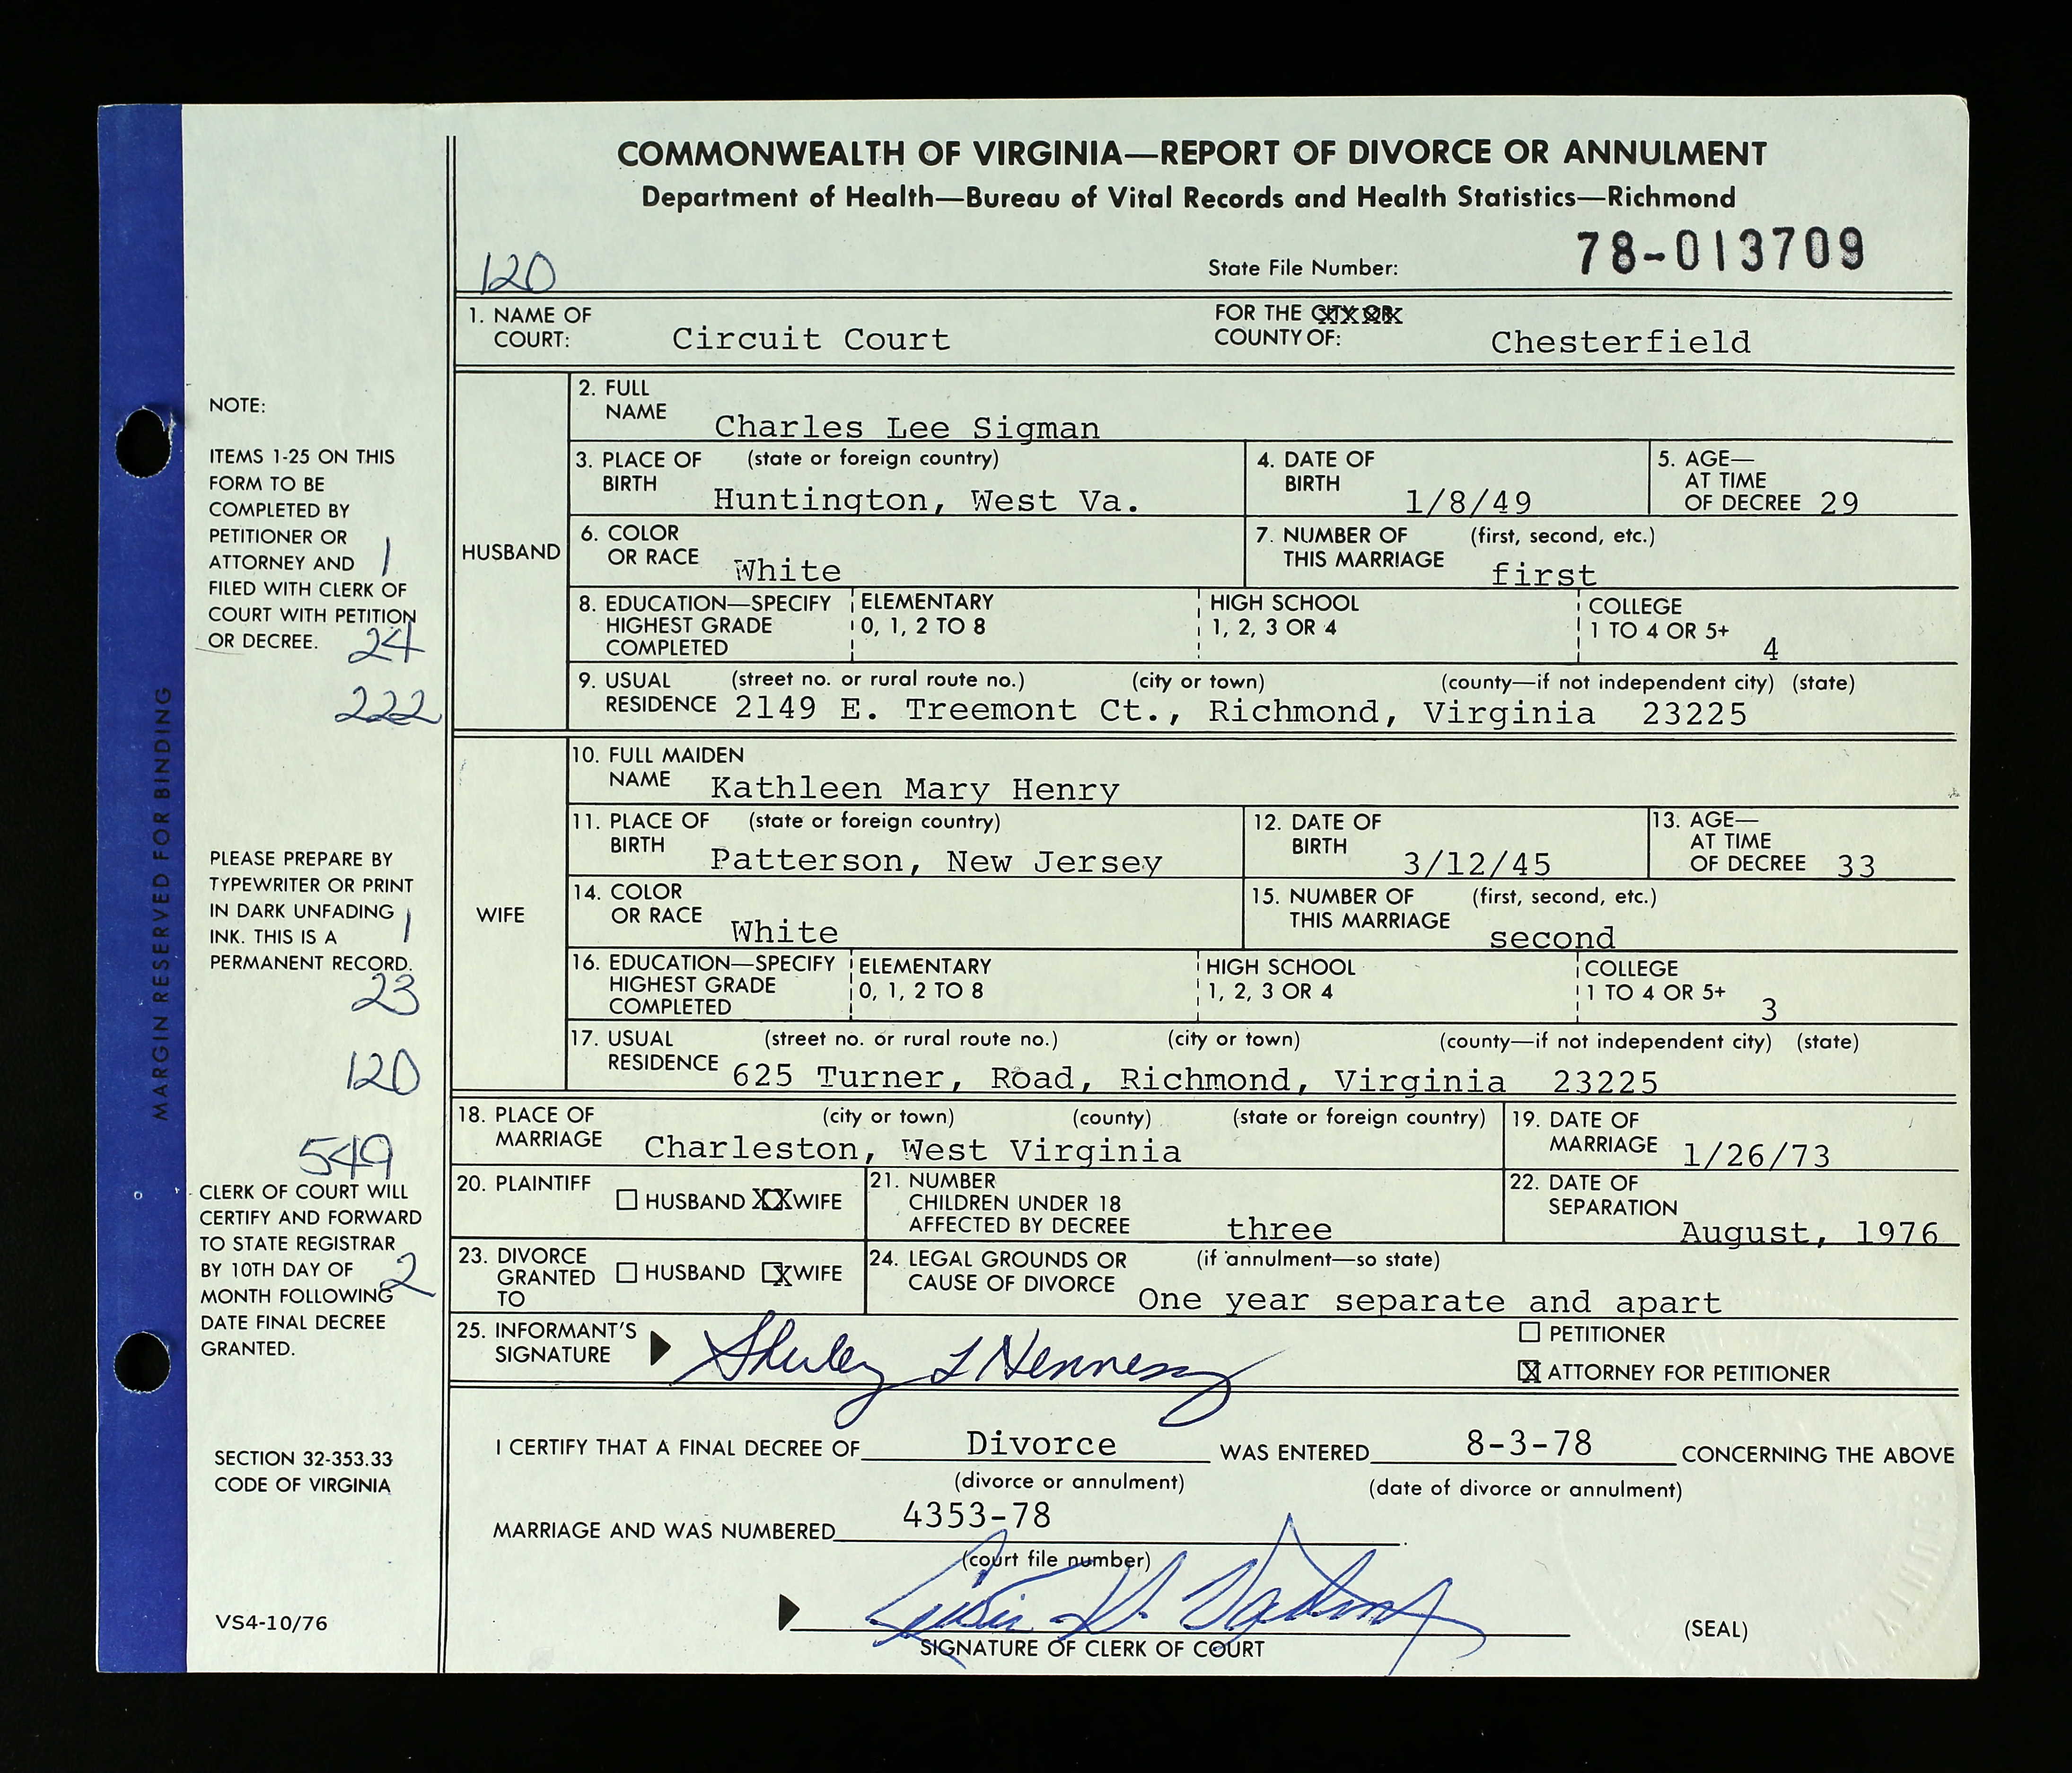 COMMONWEALTH OF VIRGINIA—REPORT OF DIVORCE OR ANNULMENT
Department of Health—Bureau of Vital Records and Health Statistics—Richmond
120
State File Number: 78-013709
1. NAME OF COURT: Circuit Court FOR THE CITY OR COUNTY OF: Chesterfield
HUSBAND
2. FULL NAME Charles Lee Sigman
3. PLACE OF BIRTH (state or foreign country) Huntington, West Va.
4. DATE OF BIRTH 1/8/49
5. AGE— AT TIME OF DECREE 29
6. COLOR OR RACE White
7. NUMBER OF THIS MARRIAGE (first, second, etc.) first
8. EDUCATION—SPECIFY HIGHEST GRADE COMPLETED
ELEMENTARY 0, 1, 2 TO 8
HIGH SCHOOL 1, 2, 3 OR 4
COLLEGE 1 TO 4 OR 5+ 4
9. USUAL RESIDENCE (street no. or rural route no.) (city or town) (county—if not independent city) (state)
2149 E. Treemont Ct., Richmond, Virginia 23225
WIFE
10. FULL MAIDEN NAME Kathleen Mary Henry
11. PLACE OF BIRTH (state or foreign country) Patterson, New Jersey
12. DATE OF BIRTH 3/12/45
13. AGE— AT TIME OF DECREE 33
14. COLOR OR RACE White
15. NUMBER OF THIS MARRIAGE (first, second, etc.) second
16. EDUCATION—SPECIFY HIGHEST GRADE COMPLETED
ELEMENTARY 0, 1, 2 TO 8
HIGH SCHOOL 1, 2, 3 OR 4
COLLEGE 1 TO 4 OR 5+ 3
17. USUAL RESIDENCE (street no. or rural route no.) (city or town) (county—if not independent city) (state)
625 Turner, Road, Richmond, Virginia 23225
18. PLACE OF MARRIAGE (city or town) (county) (state or foreign country)
Charleston, West Virginia
19. DATE OF MARRIAGE 1/26/73
20. PLAINTIFF HUSBAND XX WIFE
21. NUMBER CHILDREN UNDER 18 AFFECTED BY DECREE three
22. DATE OF SEPARATION August, 1976
23. DIVORCE GRANTED TO HUSBAND X WIFE
24. LEGAL GROUNDS OR CAUSE OF DIVORCE (if annulment—so state)
One year separate and apart
25. INFORMANT'S SIGNATURE Shirley L Hennessy
PETITIONER
X ATTORNEY FOR PETITIONER
I CERTIFY THAT A FINAL DECREE OF Divorce WAS ENTERED 8-3-78 CONCERNING THE ABOVE
(divorce or annulment) (date of divorce or annulment)
MARRIAGE AND WAS NUMBERED 4353-78
(court file number)
SIGNATURE OF CLERK OF COURT
(SEAL)
MARGIN RESERVED FOR BINDING
NOTE:
ITEMS 1-25 ON THIS
FORM TO BE
COMPLETED BY
PETITIONER OR
ATTORNEY AND 1
FILED WITH CLERK OF
COURT WITH PETITION
OR DECREE. 24
222
PLEASE PREPARE BY
TYPEWRITER OR PRINT
IN DARK UNFADING 1
INK. THIS IS A
PERMANENT RECORD.
23
120
549
CLERK OF COURT WILL
CERTIFY AND FORWARD
TO STATE REGISTRAR
BY 10TH DAY OF 2
MONTH FOLLOWING
DATE FINAL DECREE
GRANTED.
SECTION 32-353.33
CODE OF VIRGINIA
VS4-10/76